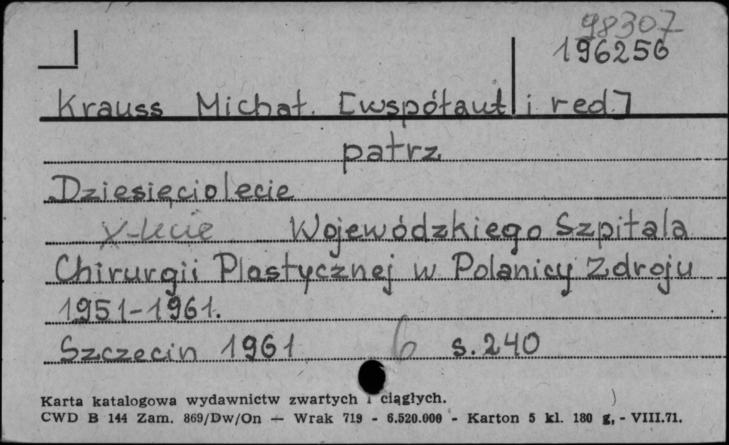 98307
196256
Krauss Michał. [współaut i red]
patrz
Dziesięciolecie
X-lecie Wojewódzkiego Szpitala
Chirurgii Plastycznej w Polanicy Zdroju
1951-1961.
Szczecin 1961 6 s.240
Karta katalogowa wydawnictw zwartych i ciągłych.
CWD B 144 Zam. 869/Dw/On — Wrak 719 - 6.520.000 - Karton 5 kl. 180 g, - VIII.71.